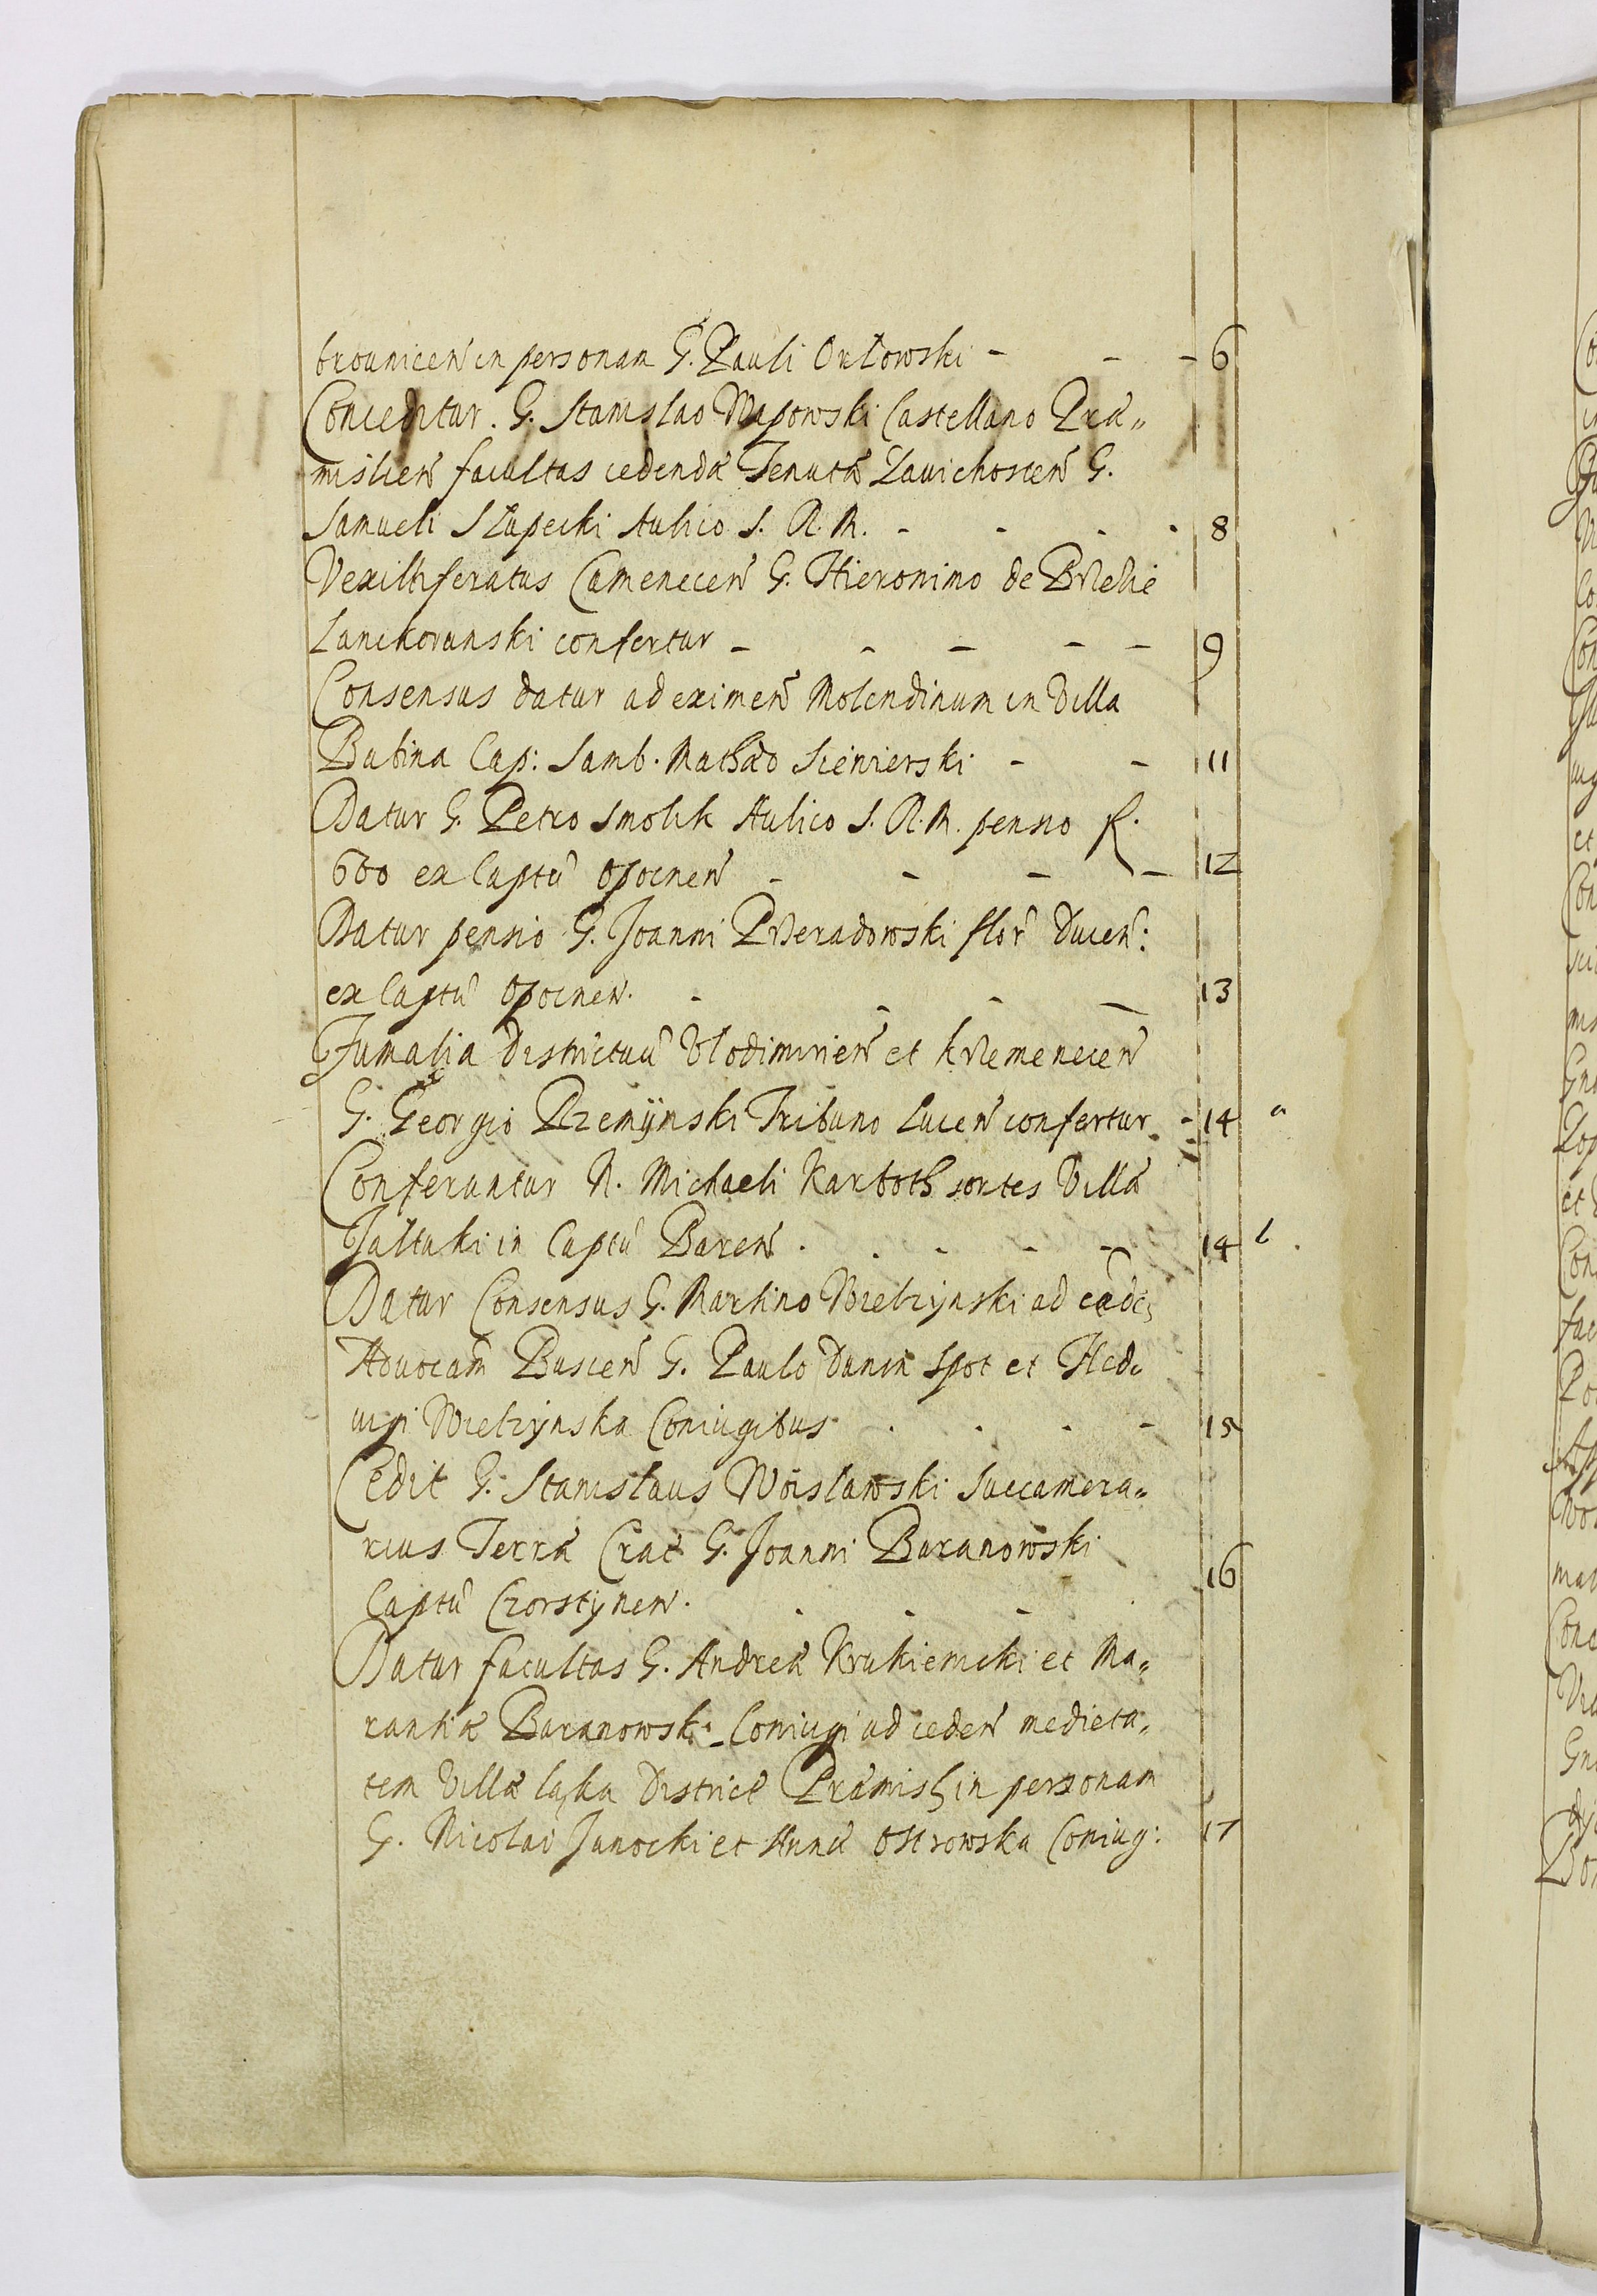 brovnicen in personam G. Pauli Orłowski - - - 6
Conceditur. G. Stanislao Wapowski Castellano Præ„
mislien facultas cedendæ Tenutæ Zavichosten G.
Samueli Słupecki Aulico S. R. M. - - - - 8
Vexilliferatus Camenecen G. Hieronimo de Brzezie
Lanckoranski confertur - - - - - 9
Consensus datur ad eximen Molendinum in Villa
Babina Cap: Samb. Mathæo Scienierski - - 11
Datur G. Petro Smolik Aulico S. R. M. pensio fl.
600 ex Captu Opocnen - - - - 12
Datur pensio G. Joanni Pzieradowski flor Ducen:
ex Captu Opocnen. - - - - 13
Fumalia Districtuu Vlodimirien et Krzemenecen
G. Georgio Przemijnski Tribuno Lucen confertur. - 14 a
Conferuntur N. Michaeli Karboth sortes Villæ
Jaltuki in Captu Baren . . - - - 14 b.
Datur Consensus G. Martino Wielzynski ad cæde;
Advocam Buscen G. Paulo Dunin Spot et Hed„
uigi Wielzynska Coniugibus . . . - 15
Cedit G. Stanislaus Woislawski Succamera„
rius Terræ Crac G. Joanni Baranowski
Captu Czorstynen. - - - . 16
Datur facultas G. Andreæ Krukienicki et Ma„
rantiæ Baranowski Coniugi ad ceden medieta„
tem Villæ Łąka District Præmisl in personam
G. Nicolai Janocki et Annæ Ostrowska Coniug: 17